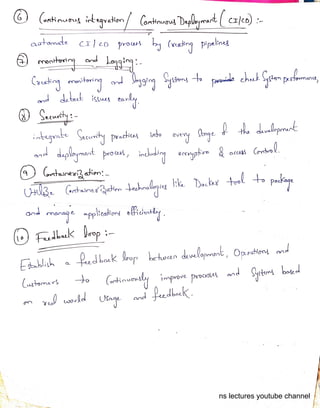 ⑥ Continuous integration / Continuous Deployment (CI/CD) :-
automate CI/CD process by Creating pipelines
⑦ monitoring and Logging :-
Creating monitoring and logging Systems to check System performance,
and detect issues early.
⑧ Security :-
integrate Security practices into every Stage of the development
and deployment process, including encryption & access Control.
⑨ Containerization :-
Utilize Containerization technologies like Docker tool to package
and manage applications efficiently.
⑩ Feedback loop :-
Establish a feedback loop between development, Operations and
Customers to Continuously improve process and Systems based
on real world Usage and feedback.
ns lectures youtube channel